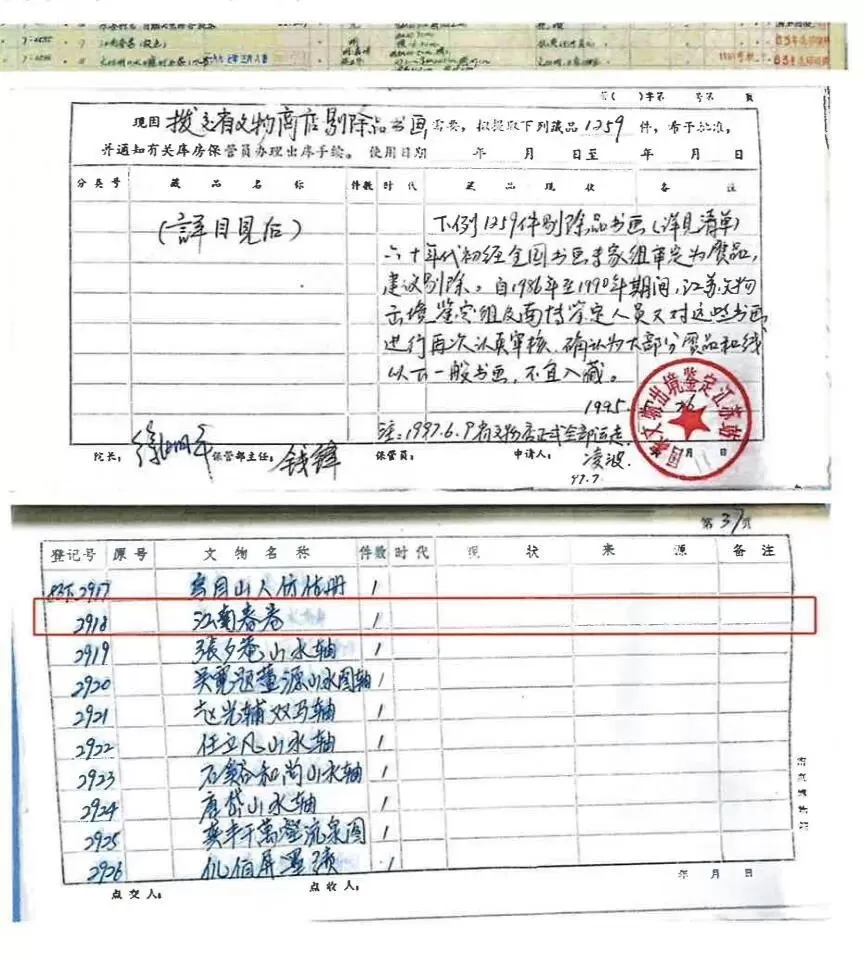 江南春卷（设色）
第（ ）字第 号第 页
现因 拨交省文物商店剔除品书画 需要，拟提取下列藏品 1259 件，希予批准，
并通知有关库房保管员办理出库手续。 使用日期 年 月 日至 年 月 日
分类号 藏品名称 件数 时代 藏品现状 备注
（詳目見后）
下列1259件剔除品书画（详见清单）
六十年代初经全国书画专家组审定为赝品，
建议剔除。自1986年至1990年期间，江苏文物
出境鉴定组及南博鉴定人员又对这些书画
进行再次认真审核，确认为大部分赝品和线
以下一般书画，不宜入藏。
1995
注：1997.6.9省文物店正式全部运走
国家文物出境鉴定江苏站
院长： 徐湖平 保管部主任： 钱锋 保管员： 申请人： 凌波
97.7.
第37页
登记号 原号 文物名称 件数 时代 现状 来源 备注
2917 乌目山人仿古册 1
2918 江南春卷 1
2919 張夕菴山水轴 1
2920 吴寬题董源山水图轴 1
2921 赵光辅双马轴 1
2922 任立凡山水轴 1
2923 石谿和尚山水轴 1
2924 唐岱山水轴 1
2925 龚半千萬壑流泉图 1
2926 1
年 月 日
点交人： 点收人：